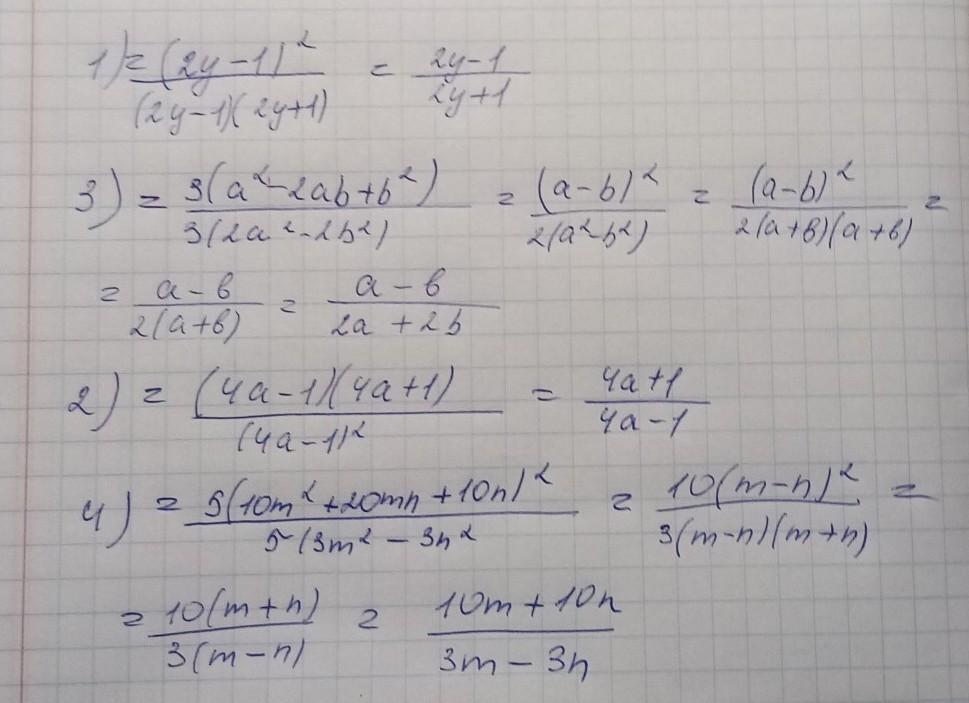 1) = (2y-1)² / (2y-1)(2y+1) = 2y-1 / 2y+1
3) = 3(a²-2ab+b²) / 3(2a²-2b²) = (a-b)² / 2(a²-b²) = (a-b)² / 2(a+b)(a+b) =
= a-b / 2(a+b) = a-b / 2a+2b
2) = (4a-1)(4a+1) / (4a-1)² = 4a+1 / 4a-1
4) = 5(10m²+20mn+10n)² / 5(3m²-3n² = 10(m-n)² / 3(m-n)(m+n) =
= 10(m+n) / 3(m-n) = 10m+10n / 3m-3n